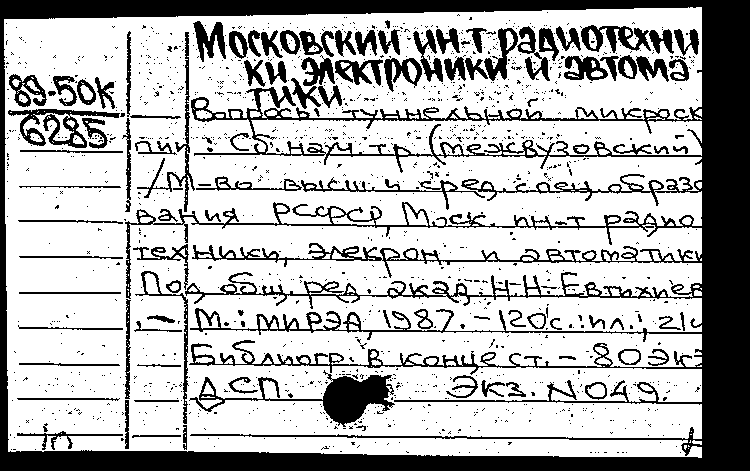 Московский ин-т радиотехни
ки, электроники и автома-
тики
89-50К
6285
Вопросы туннельной микроск
пии : Сб. науч. тр. (межвузовский)
/М-во высш. и сред. спец. образо
вания РСФСР, Моск. ин-т радио
техники, элекрон. и автоматики
Под общ. ред. акад. Н.Н. Евтихиев
.— М.: МИРЭА, 1987. — 120с.: ил.; 21
Библиогр. в конце ст. — 80 Экз
ДСП. Экз. N 049.